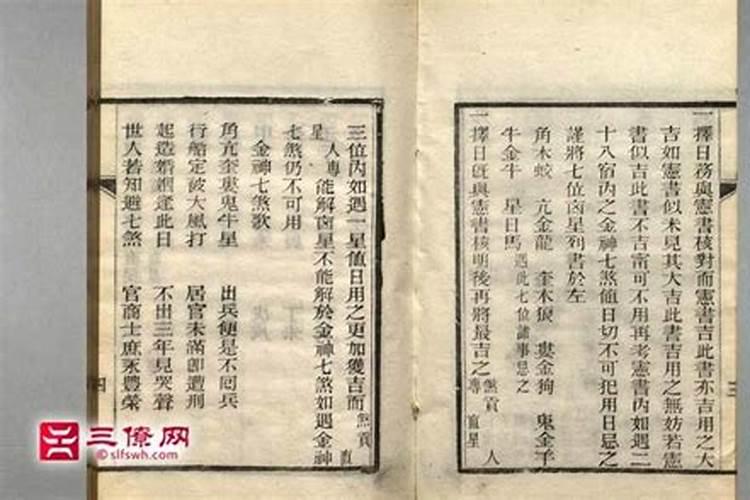 一擇日務與憲書核對而憲書吉此書亦吉用之大
吉如憲書似未見其大吉此書吉用之無妨若憲
書似吉此書不吉甯可不用再考憲書內如遇二
十八宿內之金神七煞值日切不可犯用日忌之
謹將七位凶星列書於左
角木蛟 亢金龍 奎木狼 婁金狗 鬼金羊
牛金牛 星日馬 遇此七位諸事忌之
一擇日既與憲書核明後再將最吉之煞貢 直星 人專
三
三位內如遇一星值日用之更加獲吉而煞貢 直
星 人專能解凶星不能解於金神七煞如遇金神
七煞仍不可用
金神七煞歌
角亢奎婁鬼牛星 出兵便是不囘兵
行船定被大風打 居官未滿卽遭刑
起造婚姻逢此日 不出三年見哭聲
世人若知避七煞 官商士庶永豐榮
四
三僚网
©slfswh.com